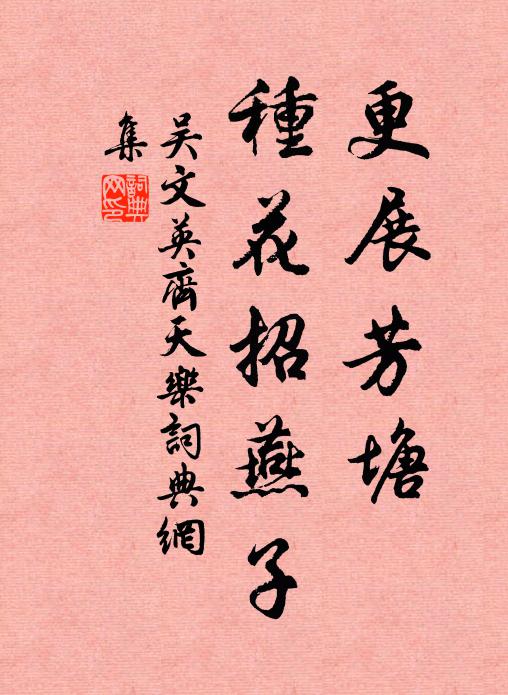 更展芳塘
種花招燕子
吴文英齊天樂詞典網
集
詞典网印